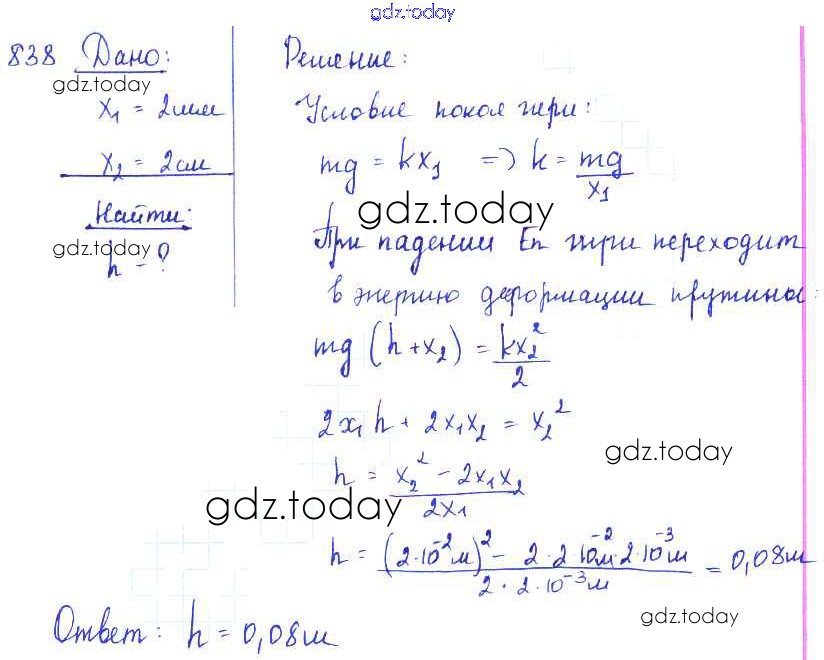 gdz.today
838 Дано:
gdz.today
x₁ = 2мм
x₂ = 2см
Найти:
gdz.today
h - ?
Решение:
Условие покоя гири:
mg = kx₁ => k = mg/x₁
gdz.today
При падении Eп гири переходит
в энергию деформации пружины:
mg (h + x₂) = kx₂²/2
2x₁h + 2x₁x₂ = x₂²
gdz.today
h = x₂² - 2x₁x₂ / 2x₁
gdz.today
h = (2·10⁻²м)² - 2·2 10⁻²м·2·10⁻³м / 2·2·10⁻³м = 0,08м
gdz.today
Ответ: h = 0,08м